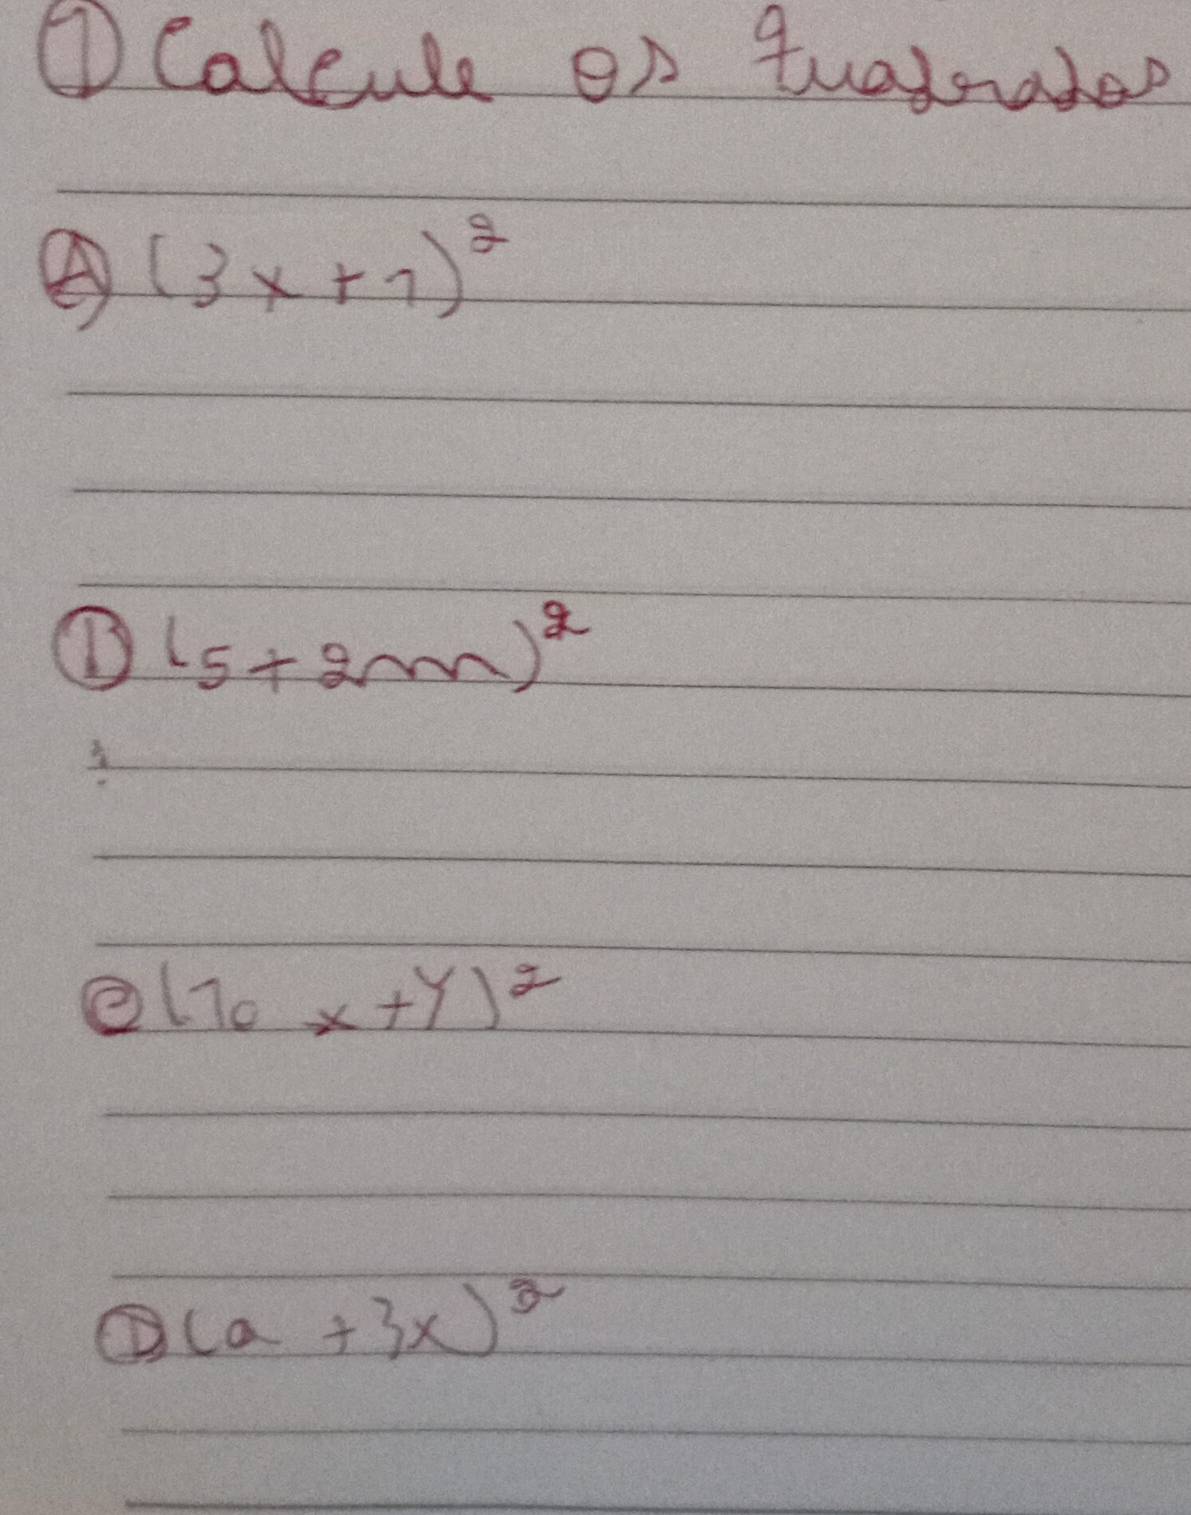 ① Calcule os quadrados
Ⓐ (3x+1)²
Ⓑ (5+2m)²
Ⓒ (10 x+y)²
Ⓓ (a +3x)²